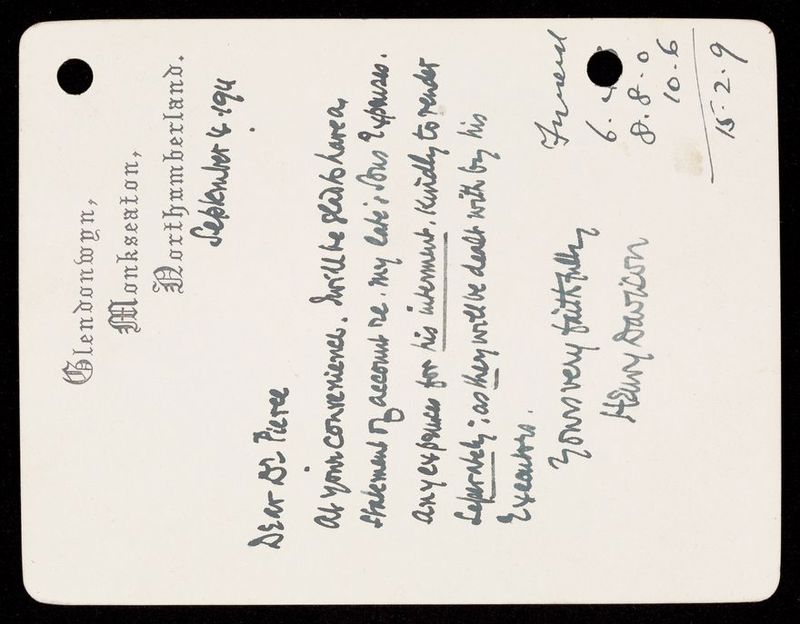 Glendonwyn,
Monkseaton,
Northumberland.
September 4. 1941
Dear Dr Pierce
At your convenience. I will be glad to have a
statement of account re. my late: Sons Expenses.
any expenses for his interment. Kindly to render
Seperately; as they will be dealt with by his
Executors.
Yours very faithfully
Henry Davison
Funeral
6.
8.8.0
10.6
15.2.9